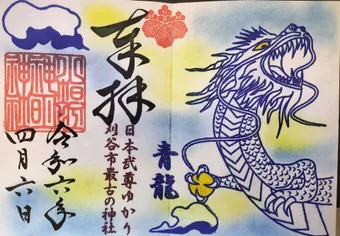 青龍
奉拝
日本武尊ゆかり
刈谷市最古の神社
小垣江
神明
神社
令和六年
四月六日